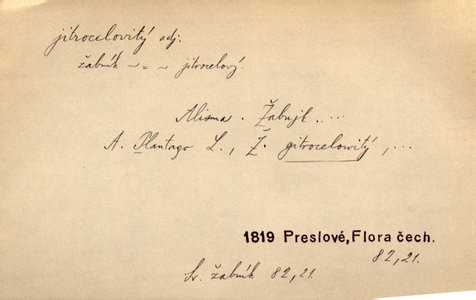 jitrocelovitý adj.
žabník ~ = ~ jitrocelový.
Alisma. Žabujk....
A. Plantago L., Ž. gitrocelowitý, ...
1819 Preslové, Flora čech.
82, 21.
sv. žabník 82, 21.